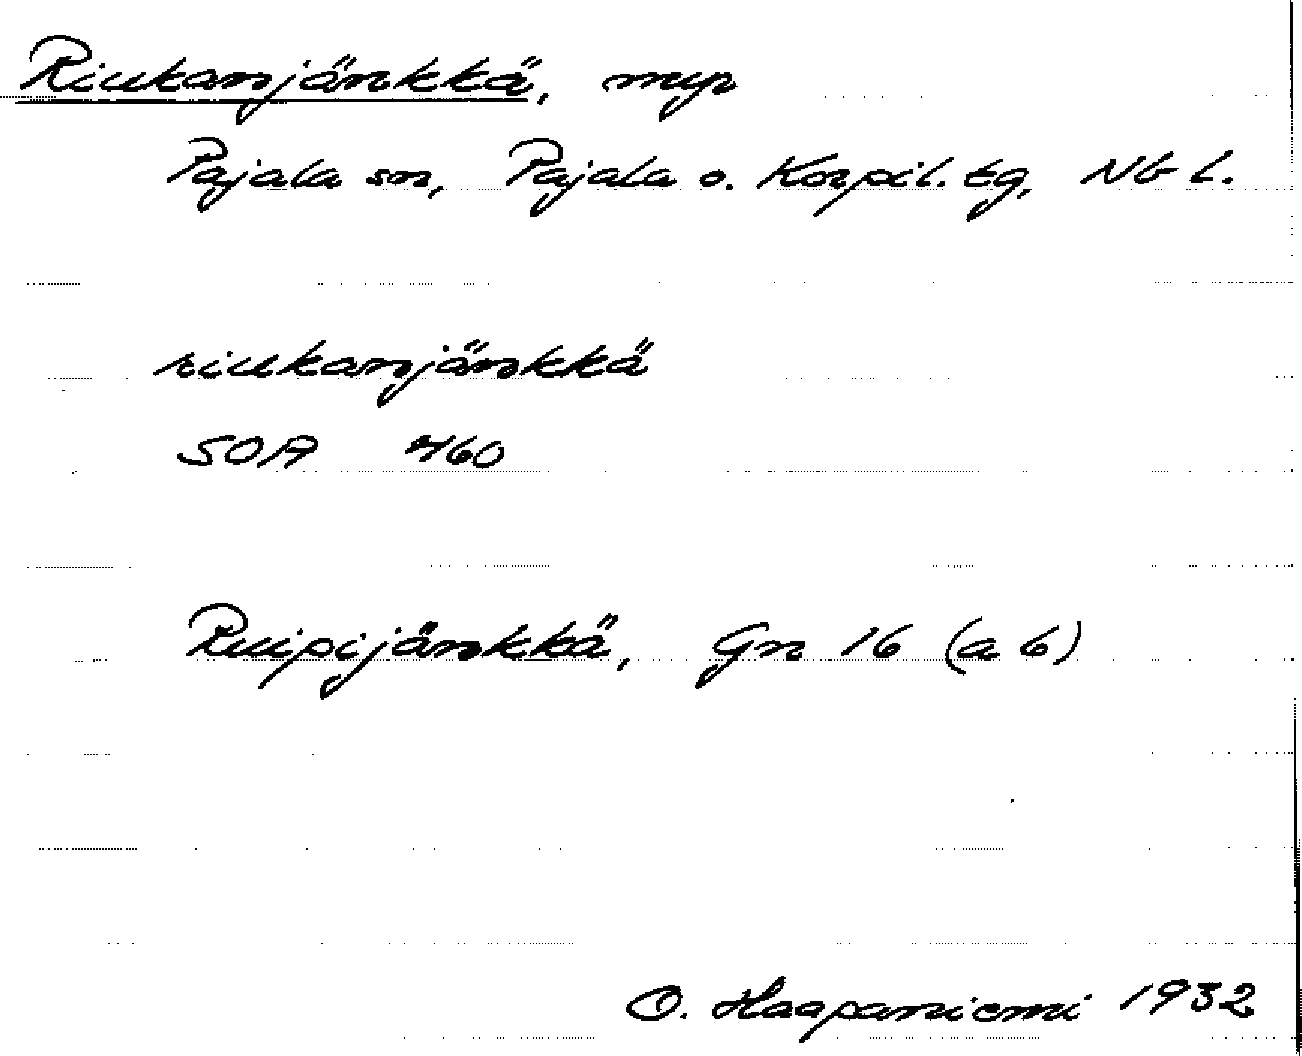 Riukanjänkkä, myr
Pajala sn, Pajala o. Korpil. tg, Nb l.
riukanjänkkä
SOA 460
Ruipijänkkä, Gn 16 (a b)
O. Haapaniemi 1932